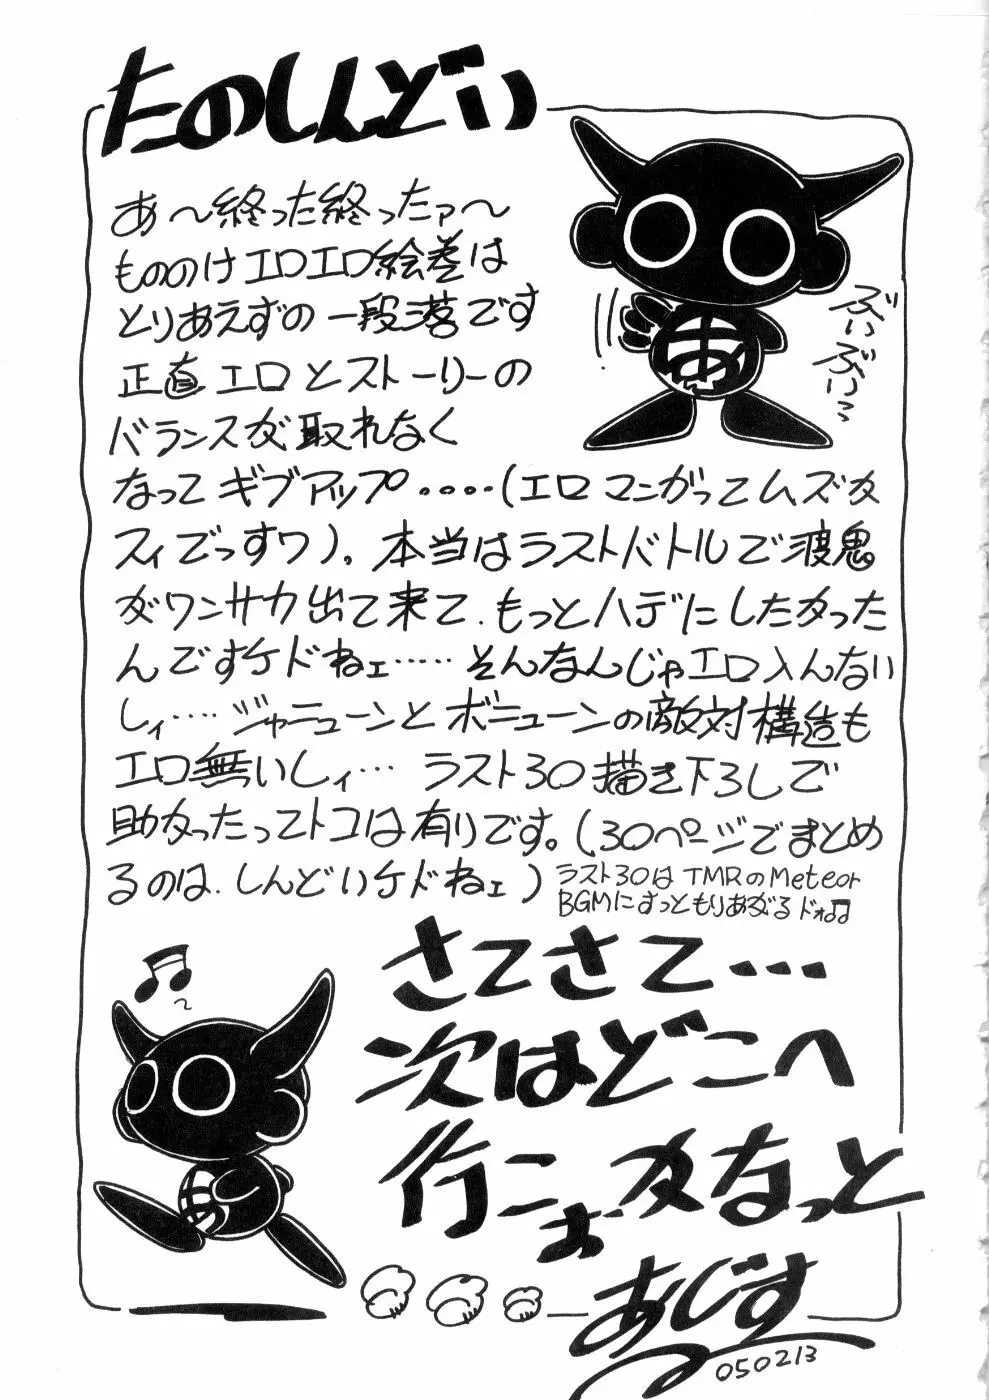 たのしんどい
あ〜終った終ったァ〜
もののけエロエロ絵巻は
とりあえずの一段落です
正直エロとストーリーの
バランスが取れなく
なってギブアップ・・・・(エロマンガってムズカ
スィでっすワ)。本当はラストバトルで渡鬼
がワンサカ出て来て、もっとハデにしたかった
んですケドねェ……そんなんじゃエロ入んない
しィ…ジャニューンとボニューンの敵対構造も
エロ無いしィ…ラスト30描き下ろしで
助かったってトコは有りです。(30ページでまとめ
るのは、しんどいケドねェ)
ラスト30はTMRのMeteor
BGMにすっともりあがるドォ♫
ぶいぶいっ
あ
さてさて…
次はどこへ
行こぉかなっと
あじす
050213